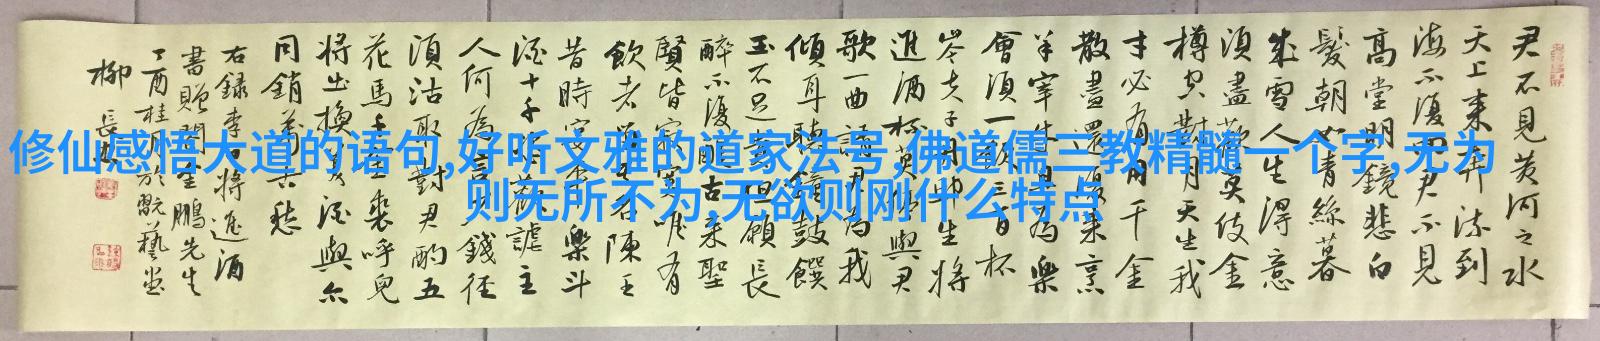 修仙感悟大道的语句,好听文雅的道家法号,佛道儒三教精髓一个字,无为
则无所不为,无欲则刚什么特点
君不見黃河之水
天上来奔流到
海不復回君不見
高堂明鏡悲白
髮朝如青絲暮
成雪人生得意
須盡歡莫使金
樽空對月天生我
才必有用千金
散盡還復来烹
羊宰牛且為樂
會須一飲三百杯
岑夫子丹邱生將
進酒杯莫停與君
歌一曲請君為我
傾耳聽鐘鼓饌
玉不足貴但願長
醉不復醒古来聖
賢皆寂寞唯有
飲者留其名陳王
昔時宴平樂斗
酒十千恣歡謔主
人何為言少錢徑
須沽取對君酌五
花馬千金裘呼兒
將出換美酒與尔
同銷萬古愁
右録李白將進酒
書贈鵬先生
丁酉桂月於翫藝堂
柳長